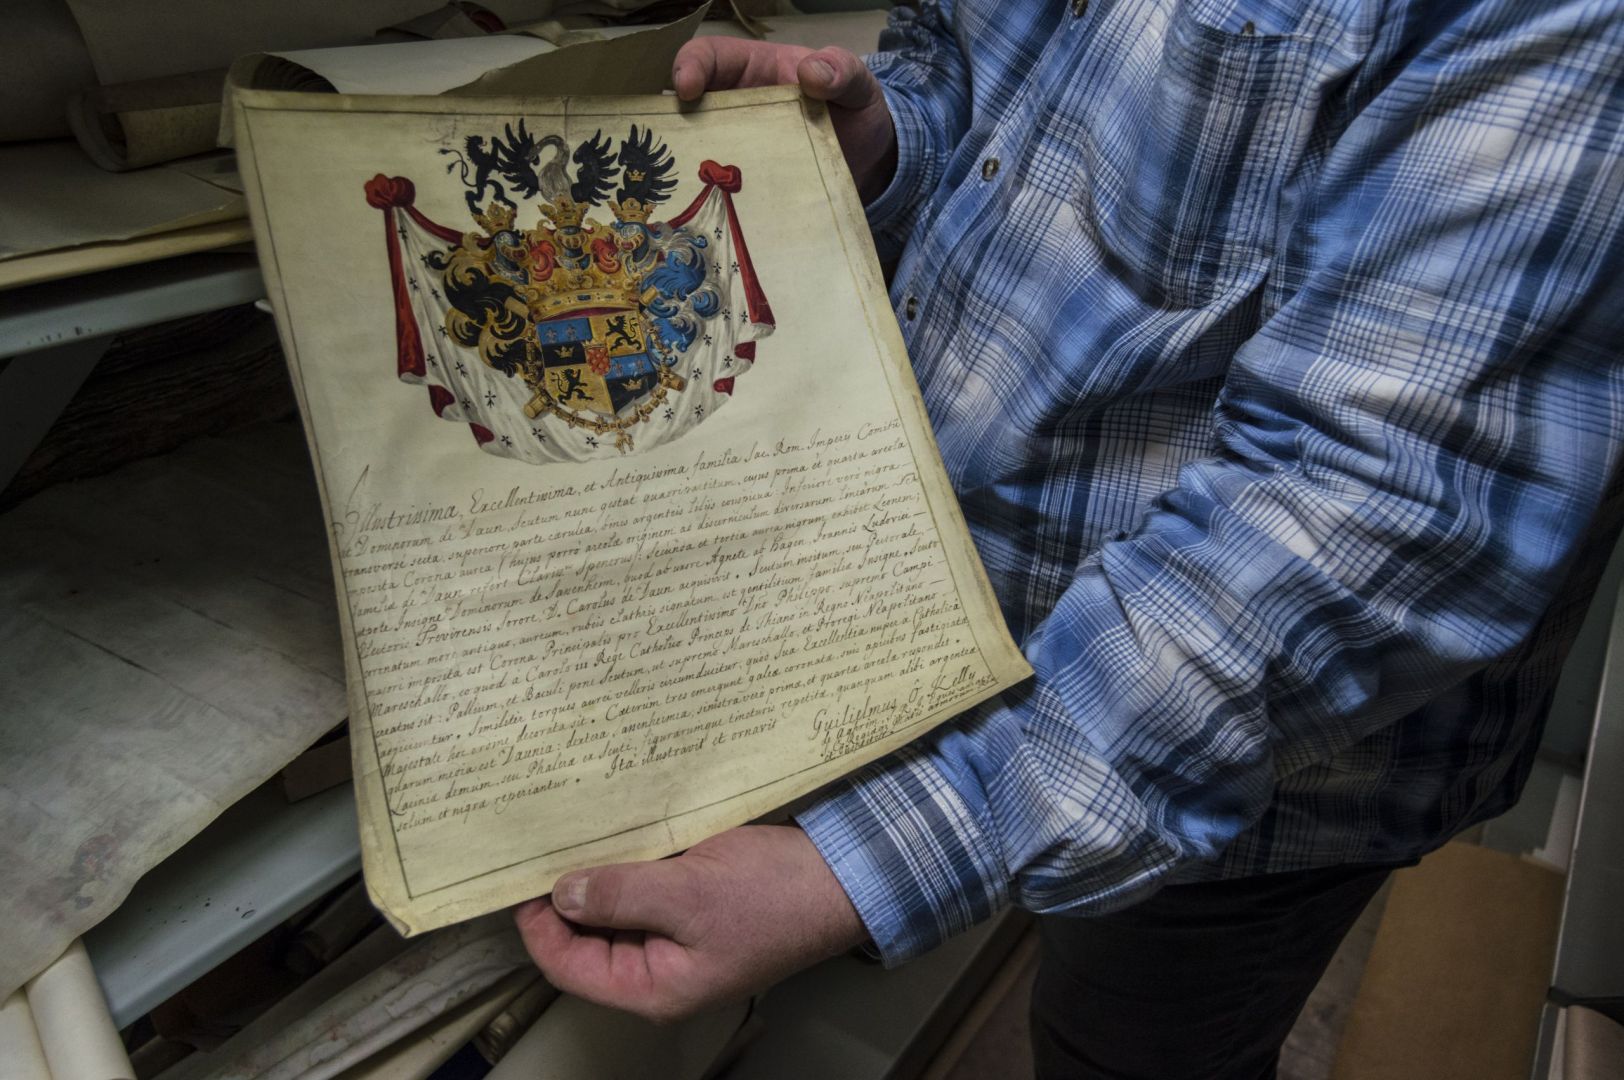 Illustrissima, Excellentissima, et Antiquissima familia Sac. Rom. Imperij Comitũ
et Dominorum de Daun, Scutum nunc gestat quadripartitum, cujus prima et quarta areola
transverse secta, superiore parte cærulea, binis argenteis lilijs conspicua: Inferiori verò nigra
imposita Corona aurea (hujus porrò areolæ originem as discerniculum diversarum linearum
familiæ de Daun refert Spenerus): secunda et tertia aurea nigrum exhibet Leonem;
utpote Insigne Dominorum de Sanenheim, quod ab uxore Agnete ab Hagen, Joannis Ludovici
Electoris Trevirensis Sorore, D. Carolus de Daun acquisivit. Scutum insitum, seu Pectorale,
ornatum more antiquo, aureum, rubeis clathris signatum, est gentilitium familiæ Insigne. Scuto
majori imposita est Corona Principalis pro Excellentissimo Dño Philippo, supremo Campi
Mareschallo, eo quod à Carolo III Rege Catholico Princeps de Thiano in Regno Neapolitano
creatus sit: Pallium, et Baculi pone Scutum, ut supremo Mareschallo, et Proregi Neapolitano
adjiciuntur. Similiter torques aurei velleris circumducitur, quòd Sua Excellentia nuper à Catholica
Majestate hoc decorata sit. Cæterum tres emergunt galeæ coronatæ, suis apicibus fastigiatæ,
quarum media est Daunia: dextera, Sanenheimia, sinistra verò primæ, et quartæ areolæ respondet.
Lacinia demùm, seu Phaleræ ex Scuti, figurarumque tincturis repetita, quamquam alibi argentea
solùm et nigra reperiantur. Ita illustravit et ornavit
Guilielmus O Kelly
de Aghrim